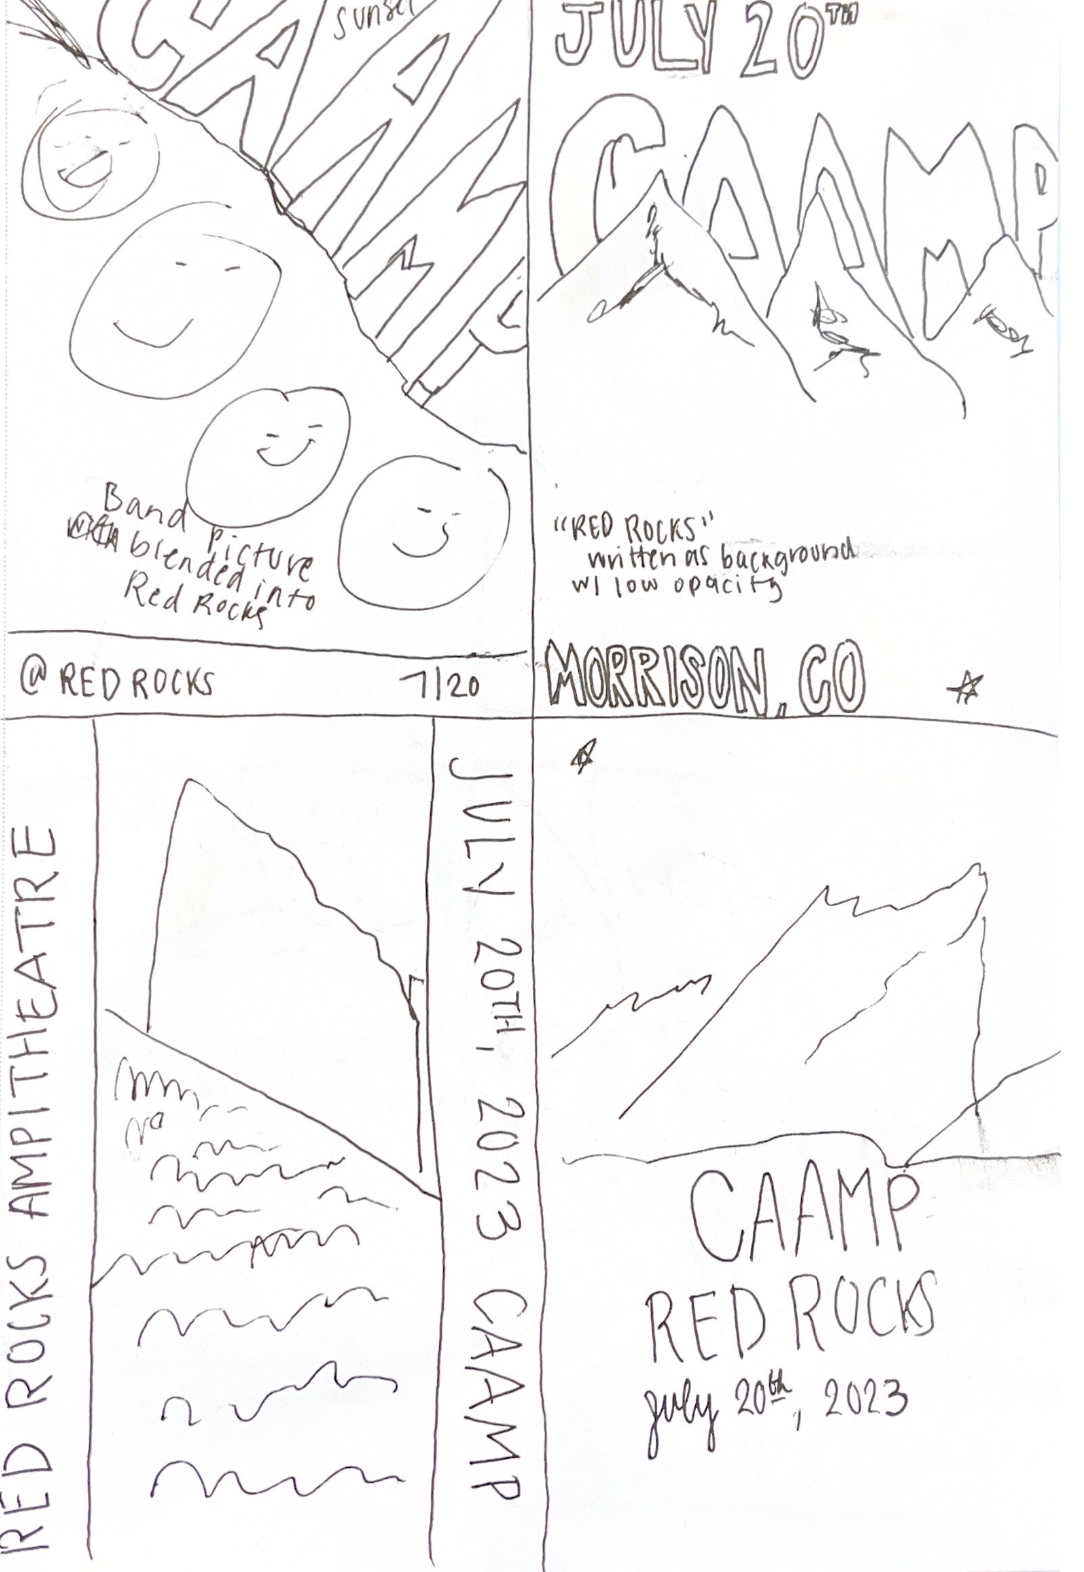 sunset
CAAMP
Band picture
with blended into
Red Rocks
@ RED ROCKS 7/20
JULY 20TH
CAAMP
"RED ROCKS"
written as background
w/ low opacity
MORRISON, CO
RED ROCKS AMPITHEATRE
JULY 20TH, 2023 CAAMP
CAAMP
RED ROCKS
july 20th, 2023